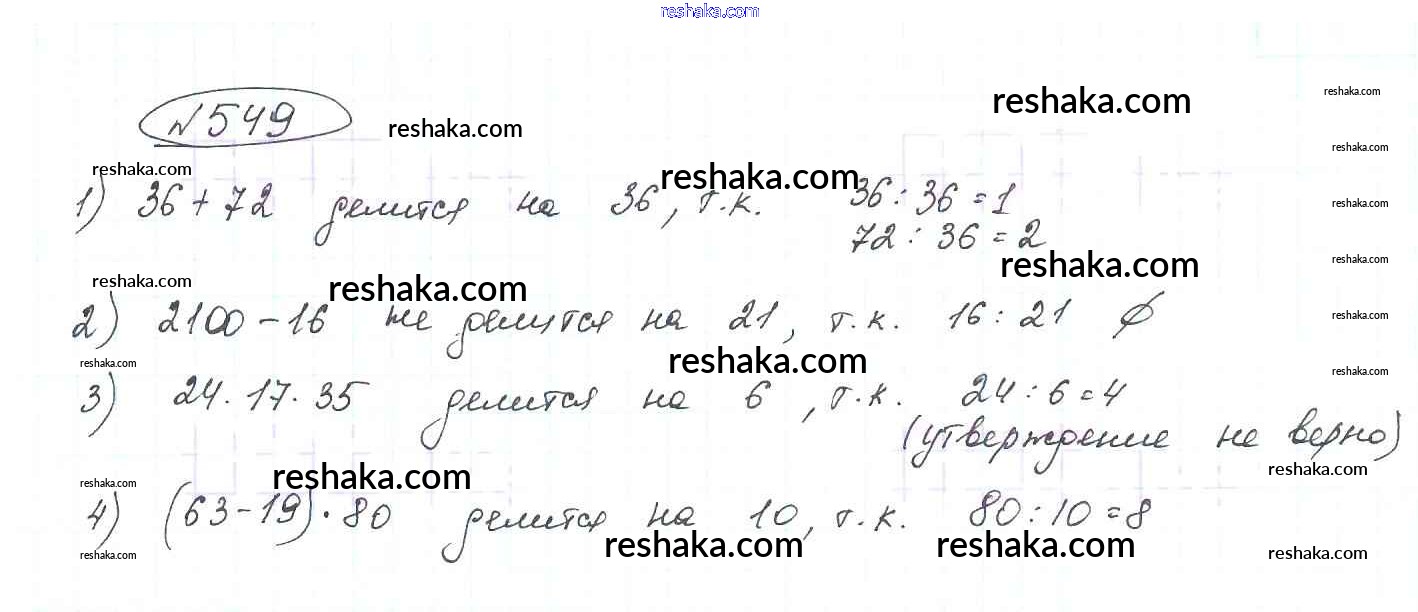 reshaka.com
№549 reshaka.com reshaka.com reshaka.com
reshaka.com
reshaka.com reshaka.com
1) 36+72 делится на 36, т.к. 36:36=1 reshaka.com
72:36=2
reshaka.com reshaka.com
reshaka.com reshaka.com
2) 2100-16 не делится на 21, т.к. 16:21 ∅ reshaka.com
reshaka.com reshaka.com reshaka.com
3) 24·17·35 делится на 6, т.к. 24:6=4
(утверждение не верно)
reshaka.com reshaka.com reshaka.com
4) (63-19)·80 делится на 10, т.к. 80:10=8
reshaka.com reshaka.com reshaka.com reshaka.com